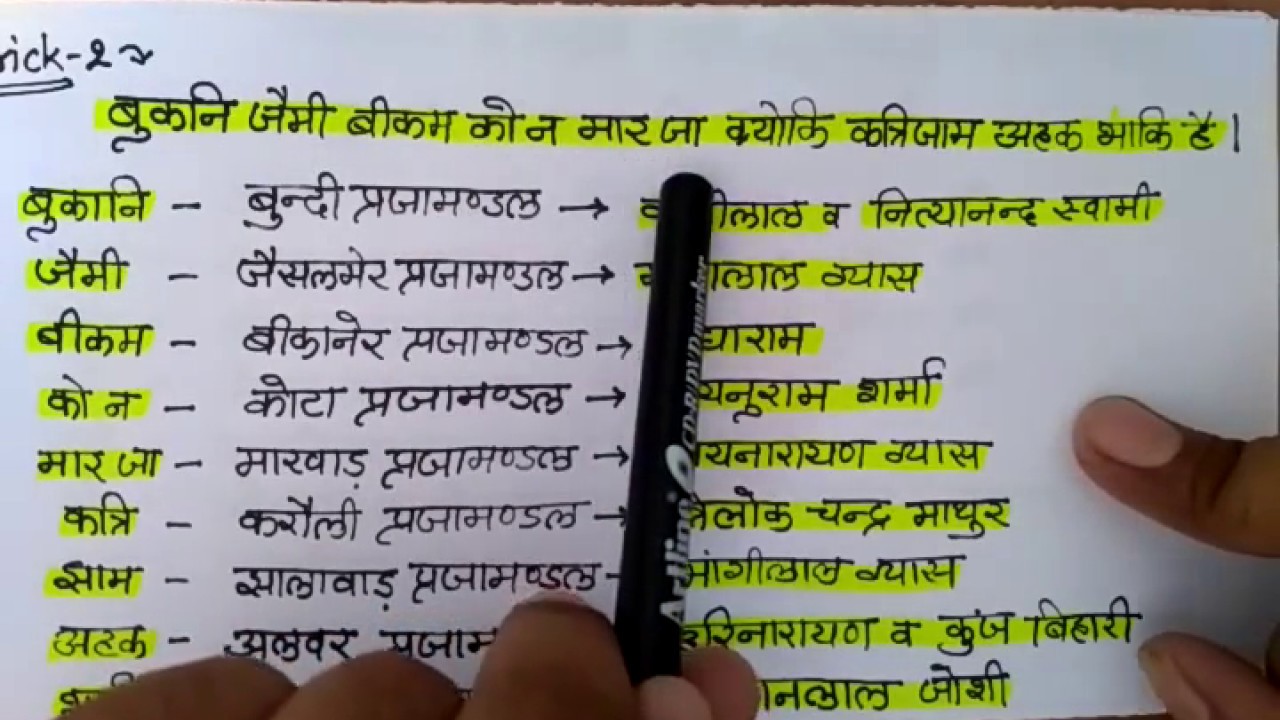 rick-2
बुकानि जैमी बीकम को न मार जा क्योकि कत्रिजाम अहक भाकि है।
बुकानि - बुन्दी प्रजामण्डल → लाल व नित्यानन्द स्वामी
जैमी - जैसलमेर प्रजामण्डल → लाल व्यास
बीकम - बीकानेर प्रजामण्डल → घाराम
को न - कोटा प्रजामण्डल → यनूराम शर्मा
मार जा - मारवाड़ प्रजामण्डल → यनारायण व्यास
कत्रि - करौली प्रजामण्डल → लोक चन्द्र माथुर
झाम - झालावाड़ प्रजामण्डल - मांगीलाल व्यास
अहक - अलवर प्रजाम रिनारायण व कुंज बिहारी
नलाल जोशी
Artline CD-R/DVD marker